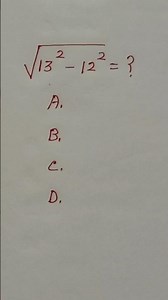 √13² - 12² = ?
A.
B.
C.
D.